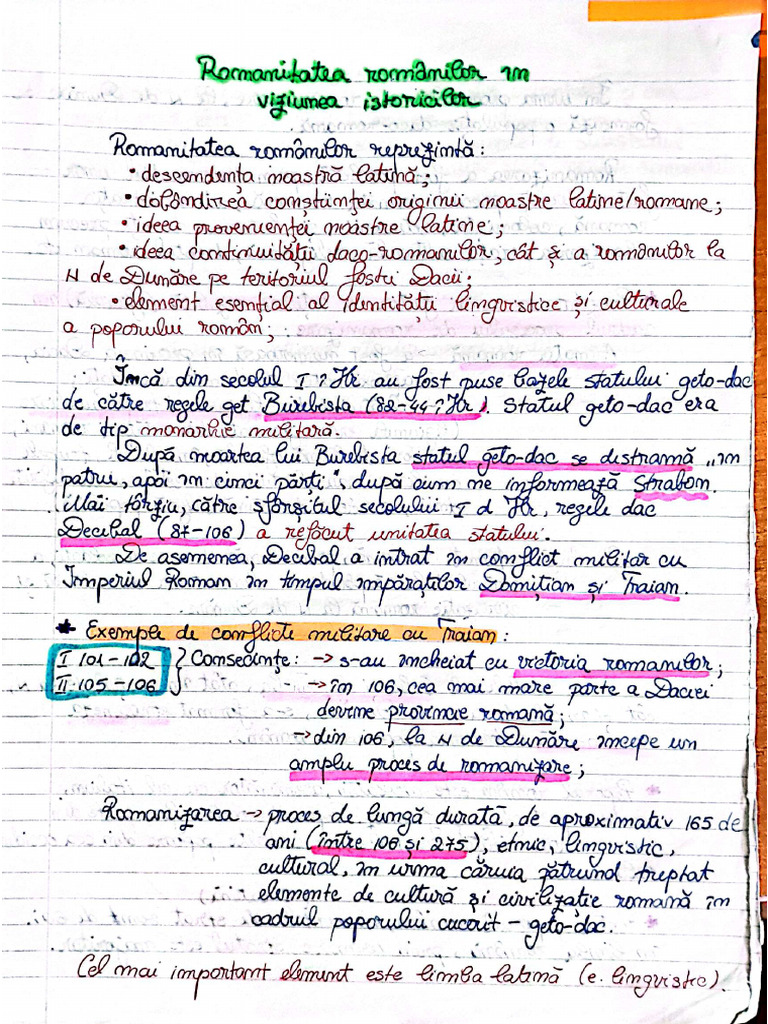 Romanitatea românilor în
viziunea istoricilor
Romanitatea românilor reprezintă:
• descendența noastră latină;
• dobândirea conștiinței originii noastre latine/romane;
• ideea provenienței noastre latine;
• ideea continuității daco-romanilor, cât și a românilor la
N de Dunăre pe teritoriul fostei Dacii;
• element esențial al identității lingvistice și culturale
a poporului român;
Încă din secolul I î Hr. au fost puse bazele statului geto-dac
de către regele get Burebista (82-44 î Hr). Statul geto-dac era
de tip monarhie militară.
După moartea lui Burebista statul geto-dac se destramă „în
patru, apoi în cinci părți", după cum ne informează Strabon.
Mai târziu, către sfârșitul secolului I d Hr, regele dac
Decibal (87-106) a refăcut unitatea statului.
De asemenea, Decibal a intrat în conflict militar cu
Imperiul Roman în timpul împăraților Domițian și Traian.
* Exemple de conflicte militare cu Traian:
I 101-102 } Consecințe: → s-au încheiat cu victoria romanilor;
II 105-106 → în 106, cea mai mare parte a Daciei
devine provincie romană;
→ din 106, la N de Dunăre începe un
amplu proces de romanizare;
Romanizarea → proces de lungă durată, de aproximativ 165 de
ani (între 106 și 275), etnic, lingvistic,
cultural, în urma căruia pătrund treptat
elemente de cultură și civilizație romană în
cadrul poporului cucerit - geto-dac.
Cel mai important element este limba latină (e. lingvistic).